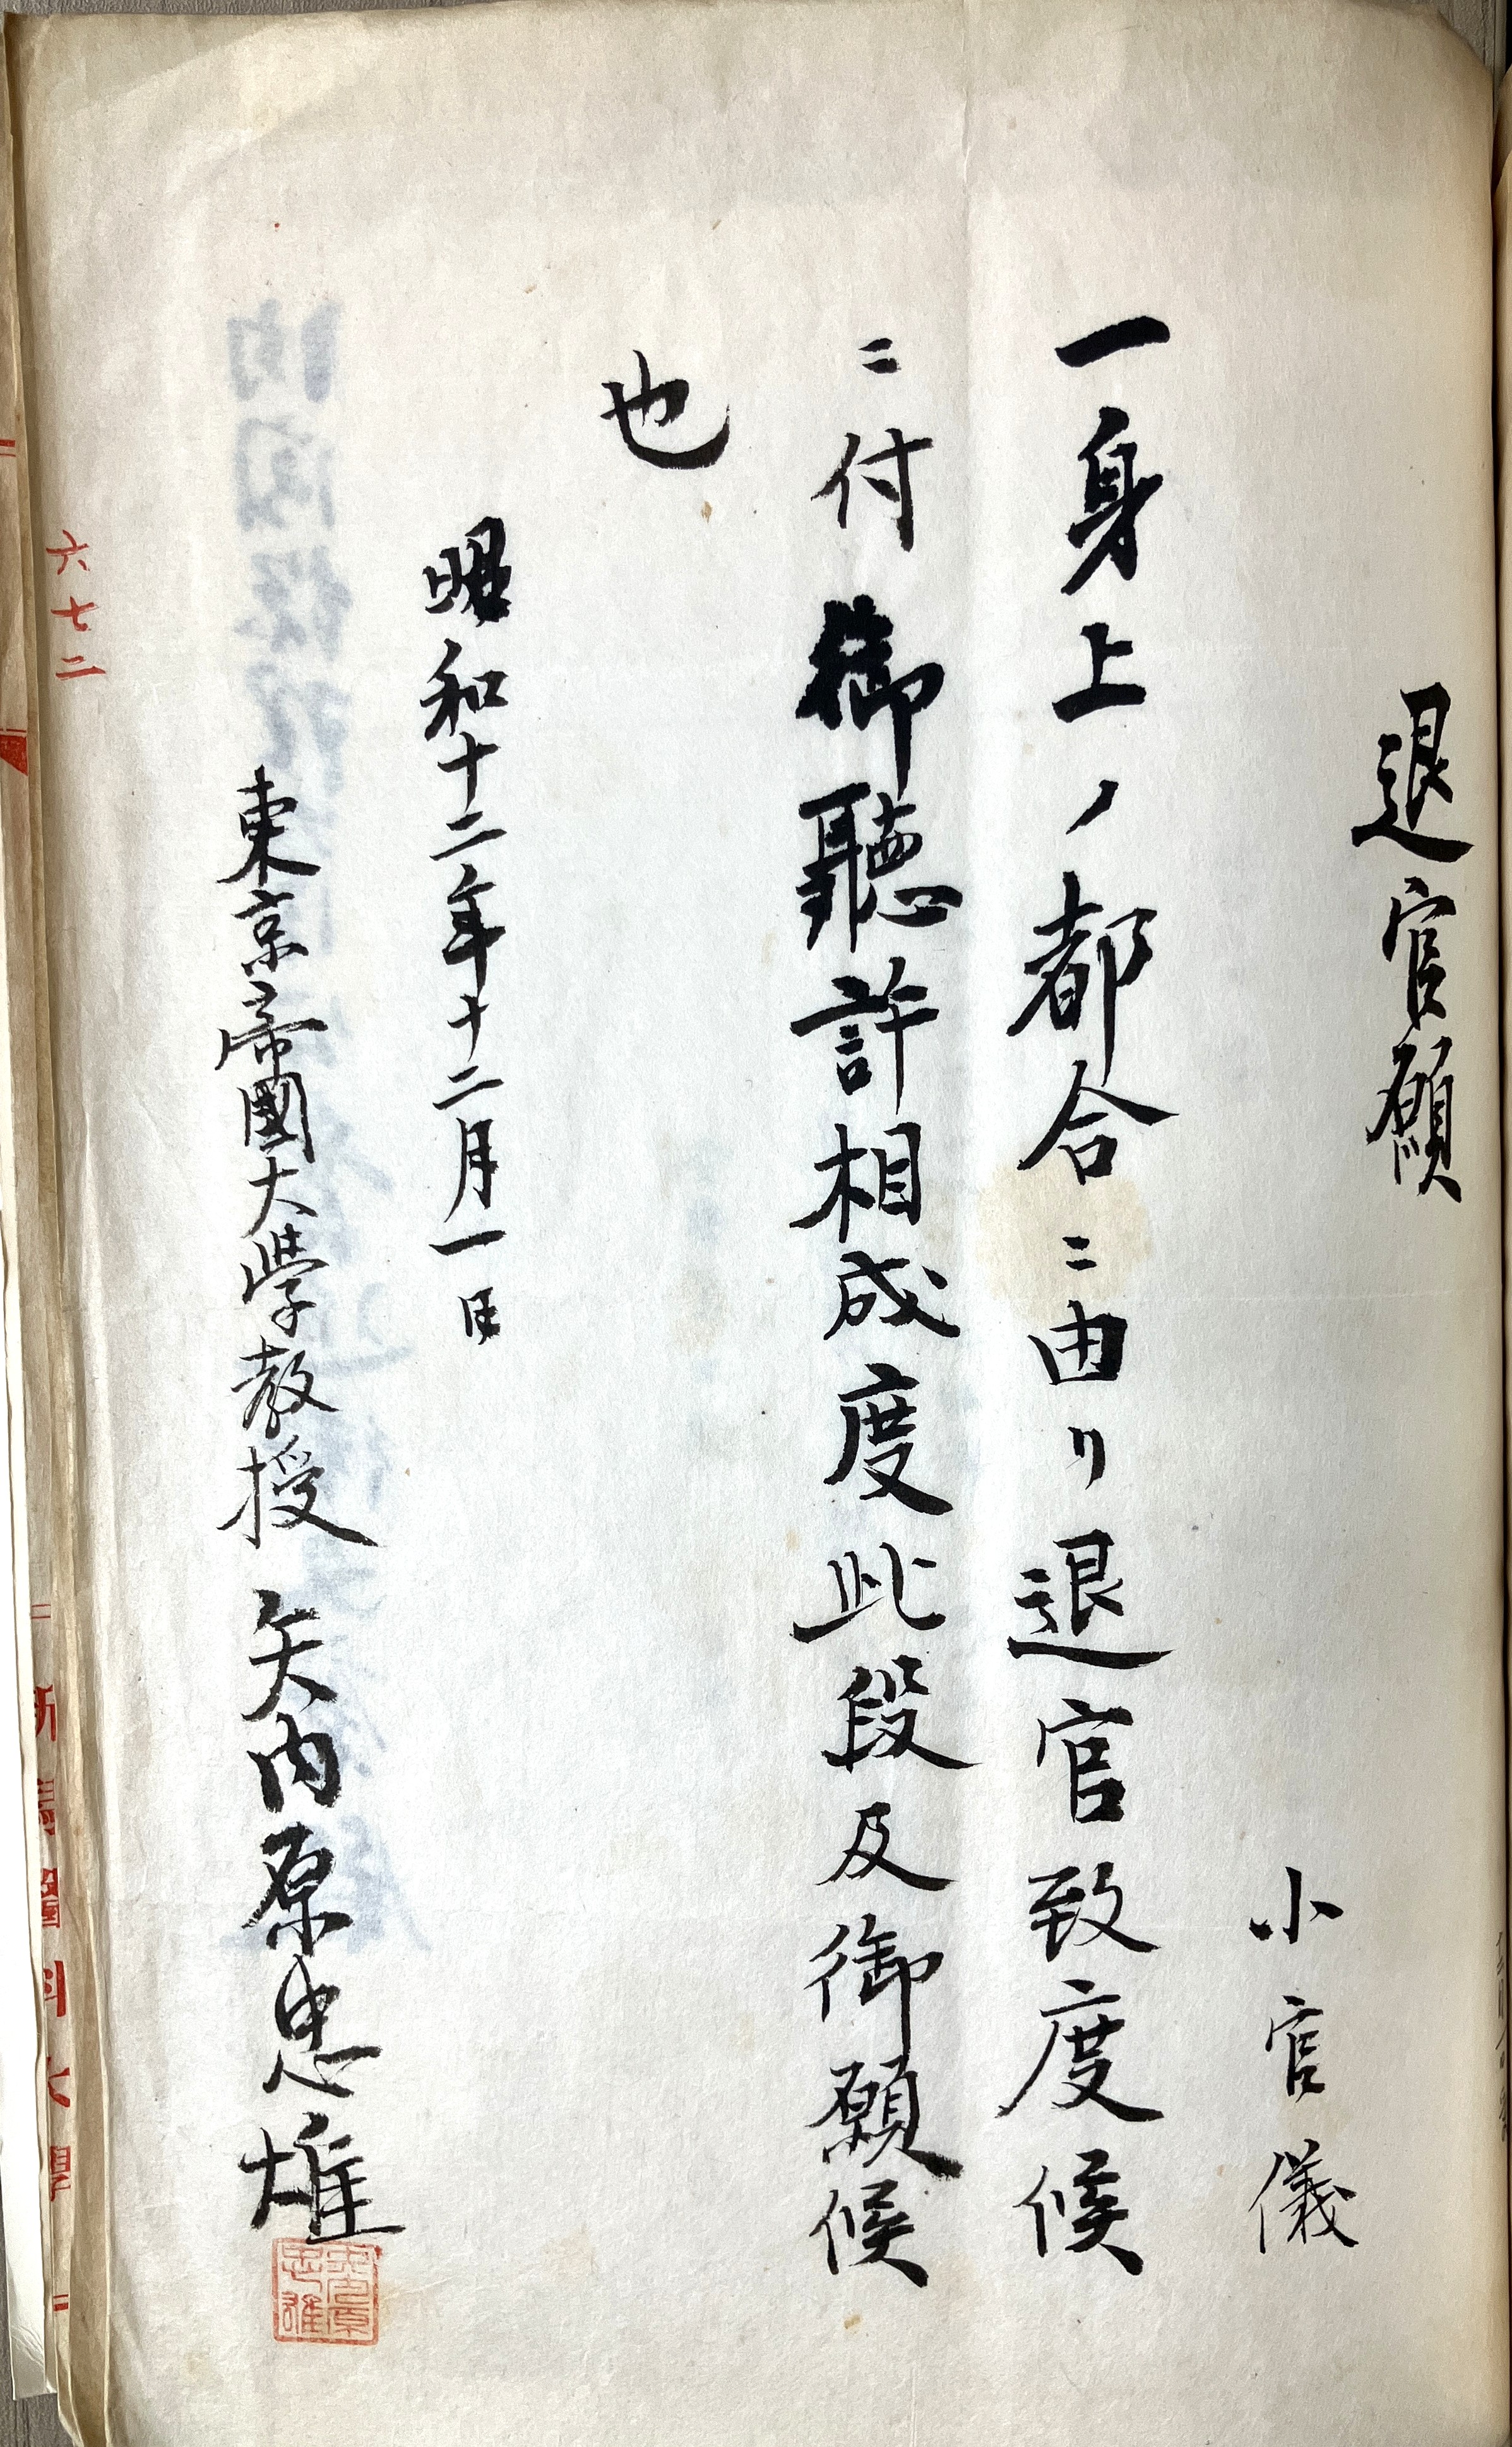 退官願
小官儀
一身上ノ都合ニ由リ退官致度候
ニ付御聽許相成度此段及御願候
也
昭和十二年十二月一日
東京帝國大學教授 矢内原忠雄
矢内原忠雄
六七二